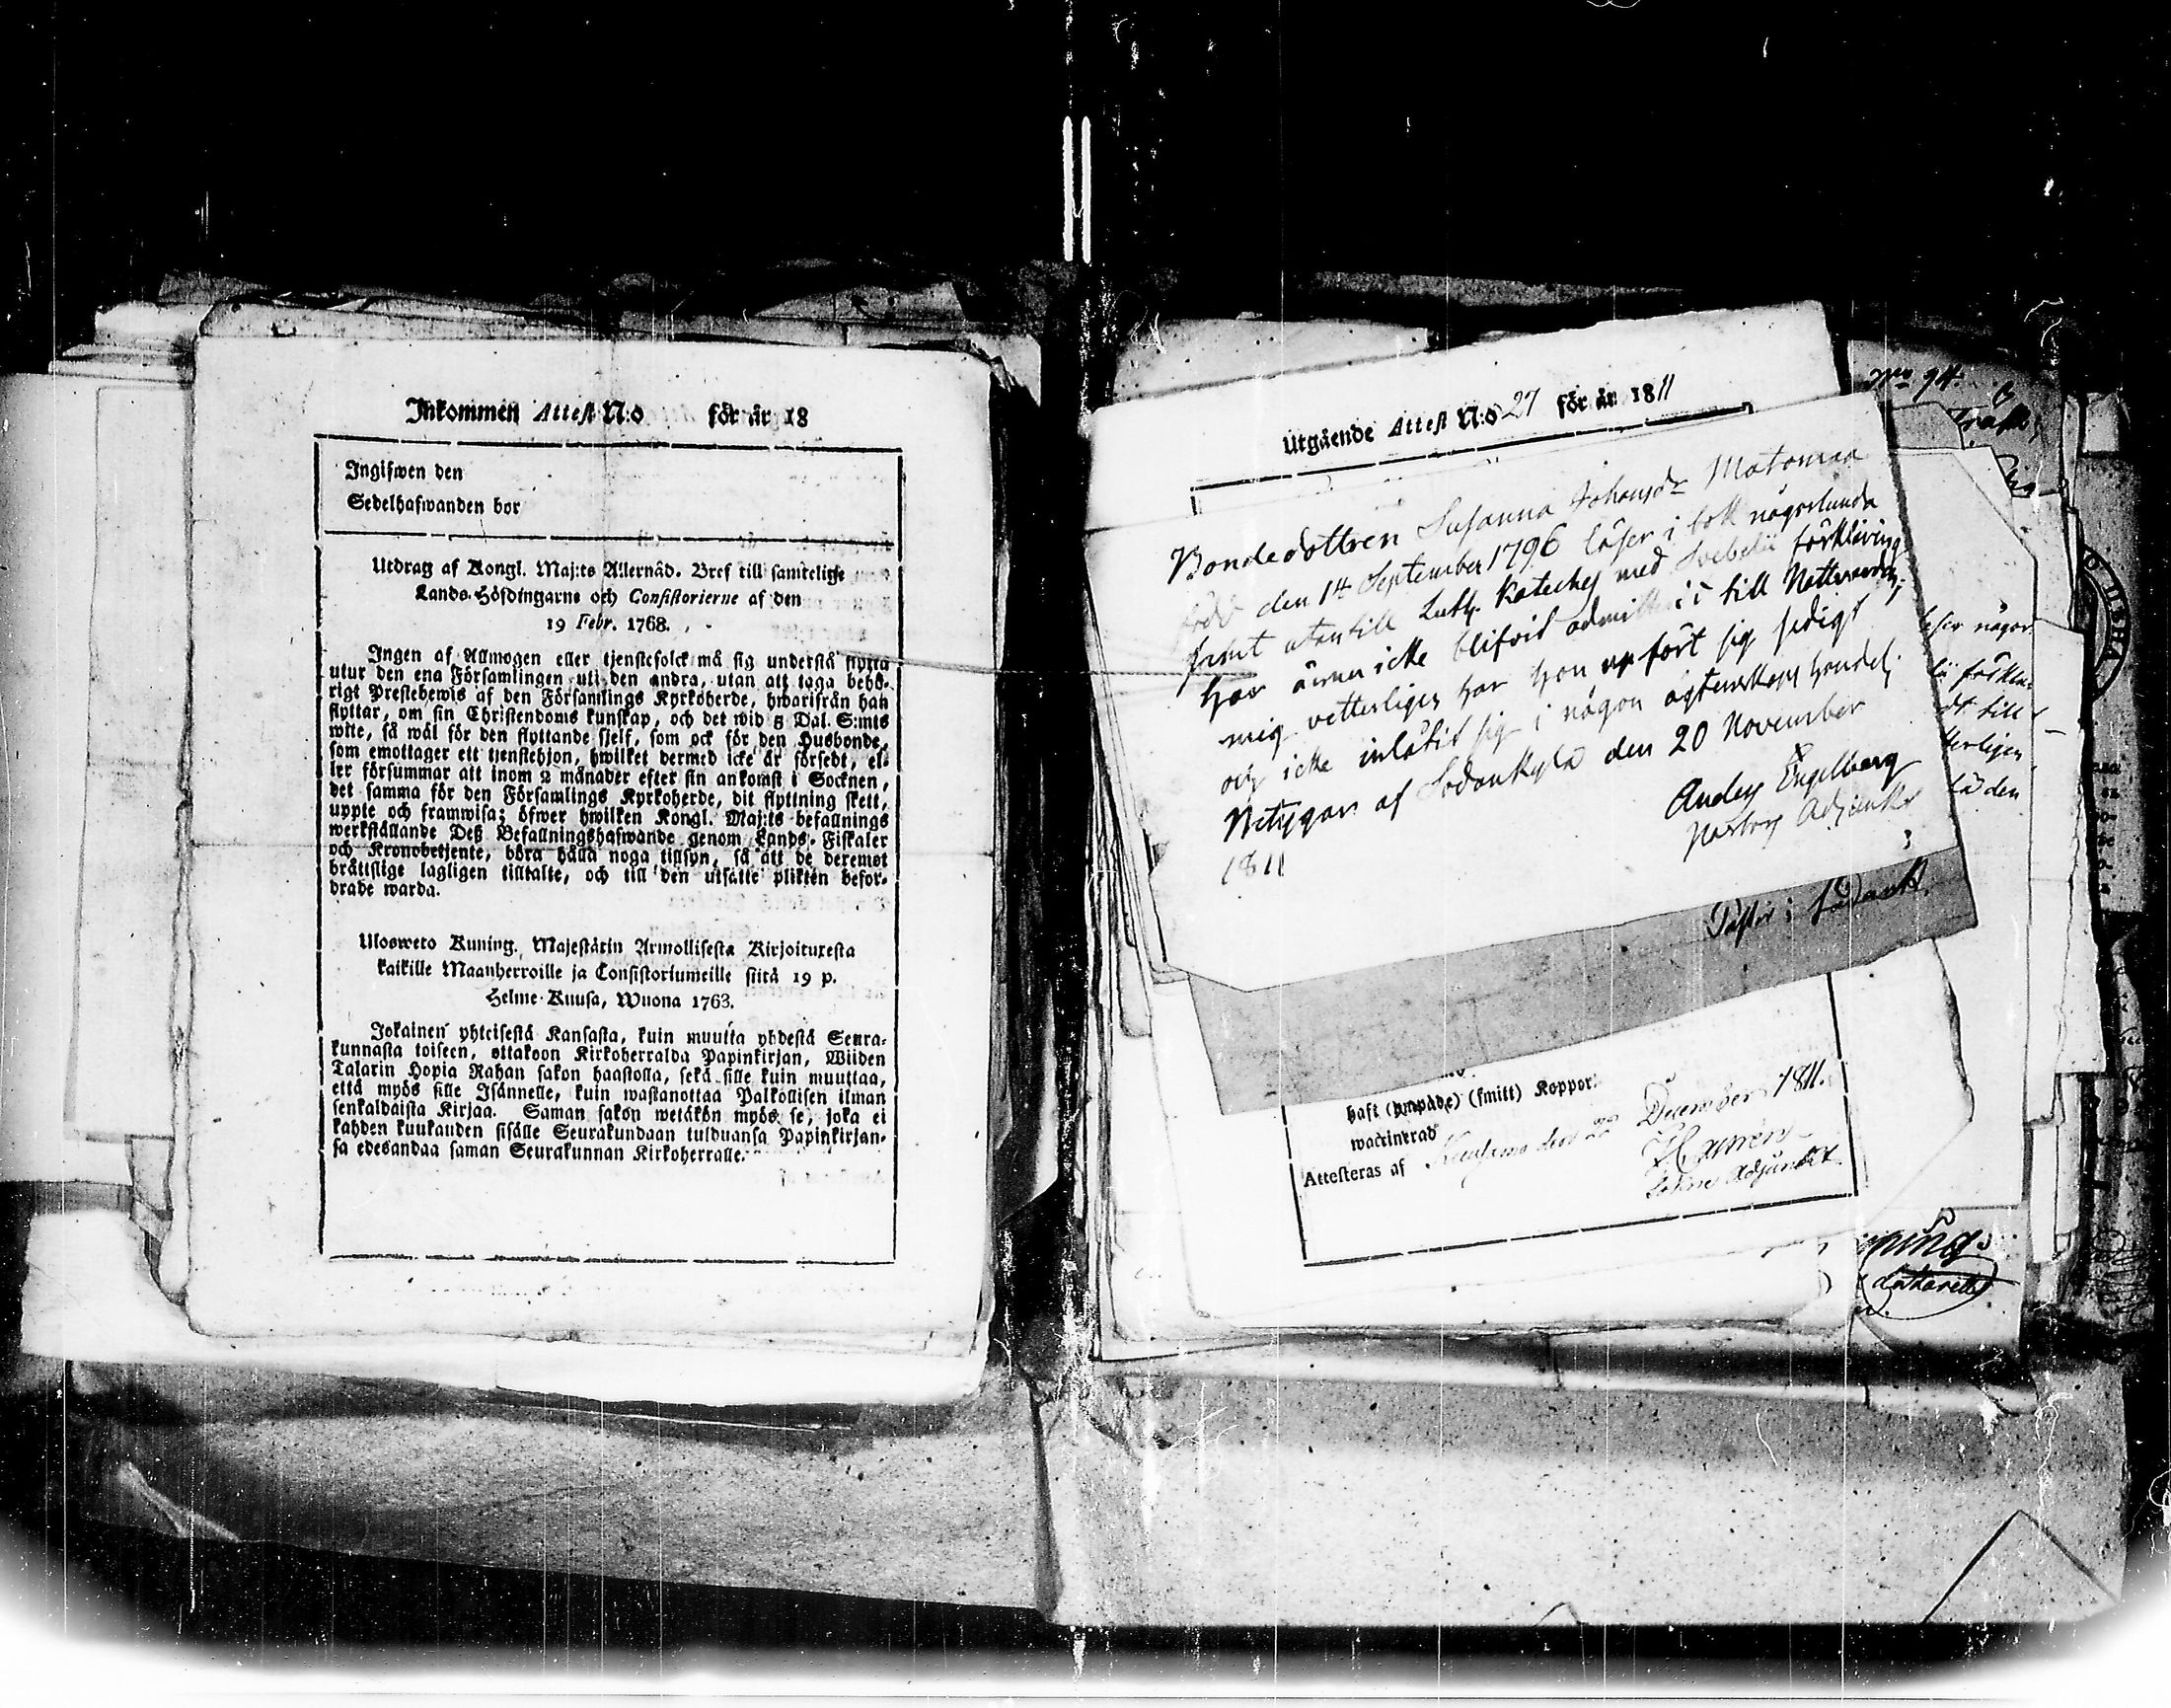 Inkommen Attest N:o för år 18
Ingifwen den
Sedelhafwanden bor
Utdrag af Kongl. Maj:ts Allernåd. Bref till samtelige
Lands-Höfdingarne och Consistorierne af den
19 Febr. 1768.
Ingen af Allmogen eller tjenstefolck må sig understå flytta
utur den ena Församlingen uti den andra, utan att taga behö-
rigt Prestebewis af den Församlings Kyrkoherde, hwarifrån han
flyttar, om sin Christendoms kunskap, och det wid 5 Dal. S:mts
wite, så wäl för den flyttande sjelf, som ock för den Husbonde,
som emottager ett tjenstehjon, hwilket dermed icke är försedt, el-
ler försummar att inom 2 månader efter sin ankomst i Socknen,
det samma för den Församlings Kyrkoherde, dit flyttning skett,
uppte och framwisa; öfwer hwilken Kongl. Maj:ts befallnings
werkställande Deß Befallningshafwande genom Lands-Fiskaler
och Kronobetjente, böra hålla noga tillsyn, så att de deremot
brättslige lagligen tilltalte, och till den utsatte plikten befor-
drade warda.
Ulosweto Kuning. Majestätin Armollisesta Kirjoituxesta
kaikille Maanherroille ja Consistoriumeille siitä 19 p.
Helme-Kuusa, Wuona 1763.
Jokainen yhteisestä Kansasta, kuin muutta yhdestä Seura-
kunnasta toiseen, ottakoon Kirkoherralda Papinkirjan, Wiiden
Talarin Hopia Rahan sakon haastolla, sekä sille kuin muuttaa,
että myös sille Isännelle, kuin wastanottaa Palkollisen ilman
senkaldaista Kirjaa. Saman sakon wetäkön myös se, joka ei
kahden kuukauden sisälle Seurakundaan tulduansa Papinkirjan-
sa edesandaa saman Seurakunnan Kirkoherralle.
Utgående Attest N:o 27 för år 1811
Bondedottren Susanna Johansdr Matomaa
född den 14 September 1796 läser i bok någorlunda
samt utantill Luth. Kateches med Svebelii förklaring
har ännu icke blifvit admitterad till Nattvarden;
mig vetterligen har hon uppfört sig sedigt
och icke inlåtit sig i någon ägtenskaps handel;
Betygar af Sodankylä den 20 November
1811
Anders Engelberg
Pastors Adjunkt
Pastor i Sodank
haft (ympade) (smitt) Koppor.
waccinerad
Attesteras af Kuusamo den 22 December 1811.
Adjunct.
läser någor
lii förkla
dt till
tterligen
lä den